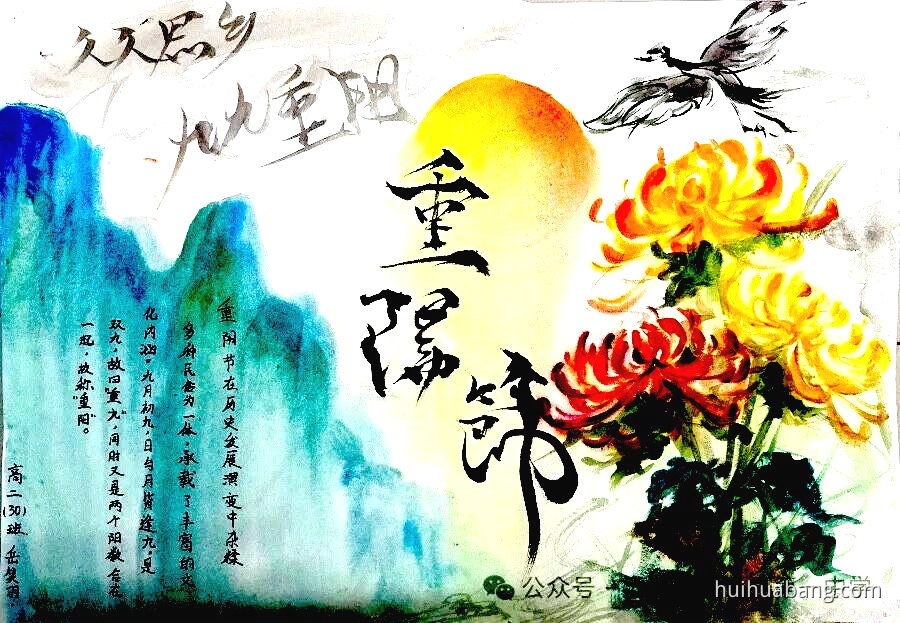 久久思乡
九九重阳
重陽節
重阳节在历史发展演变中杂糅
多种民俗为一体,承载了丰富的文
化内涵。九月初九,日与月皆逢九,是
双九,故曰"重九",同时又是两个阳数合在
一起,故称"重阳"。
高二(30)班 岳
公众号
中学
huihuabang.com